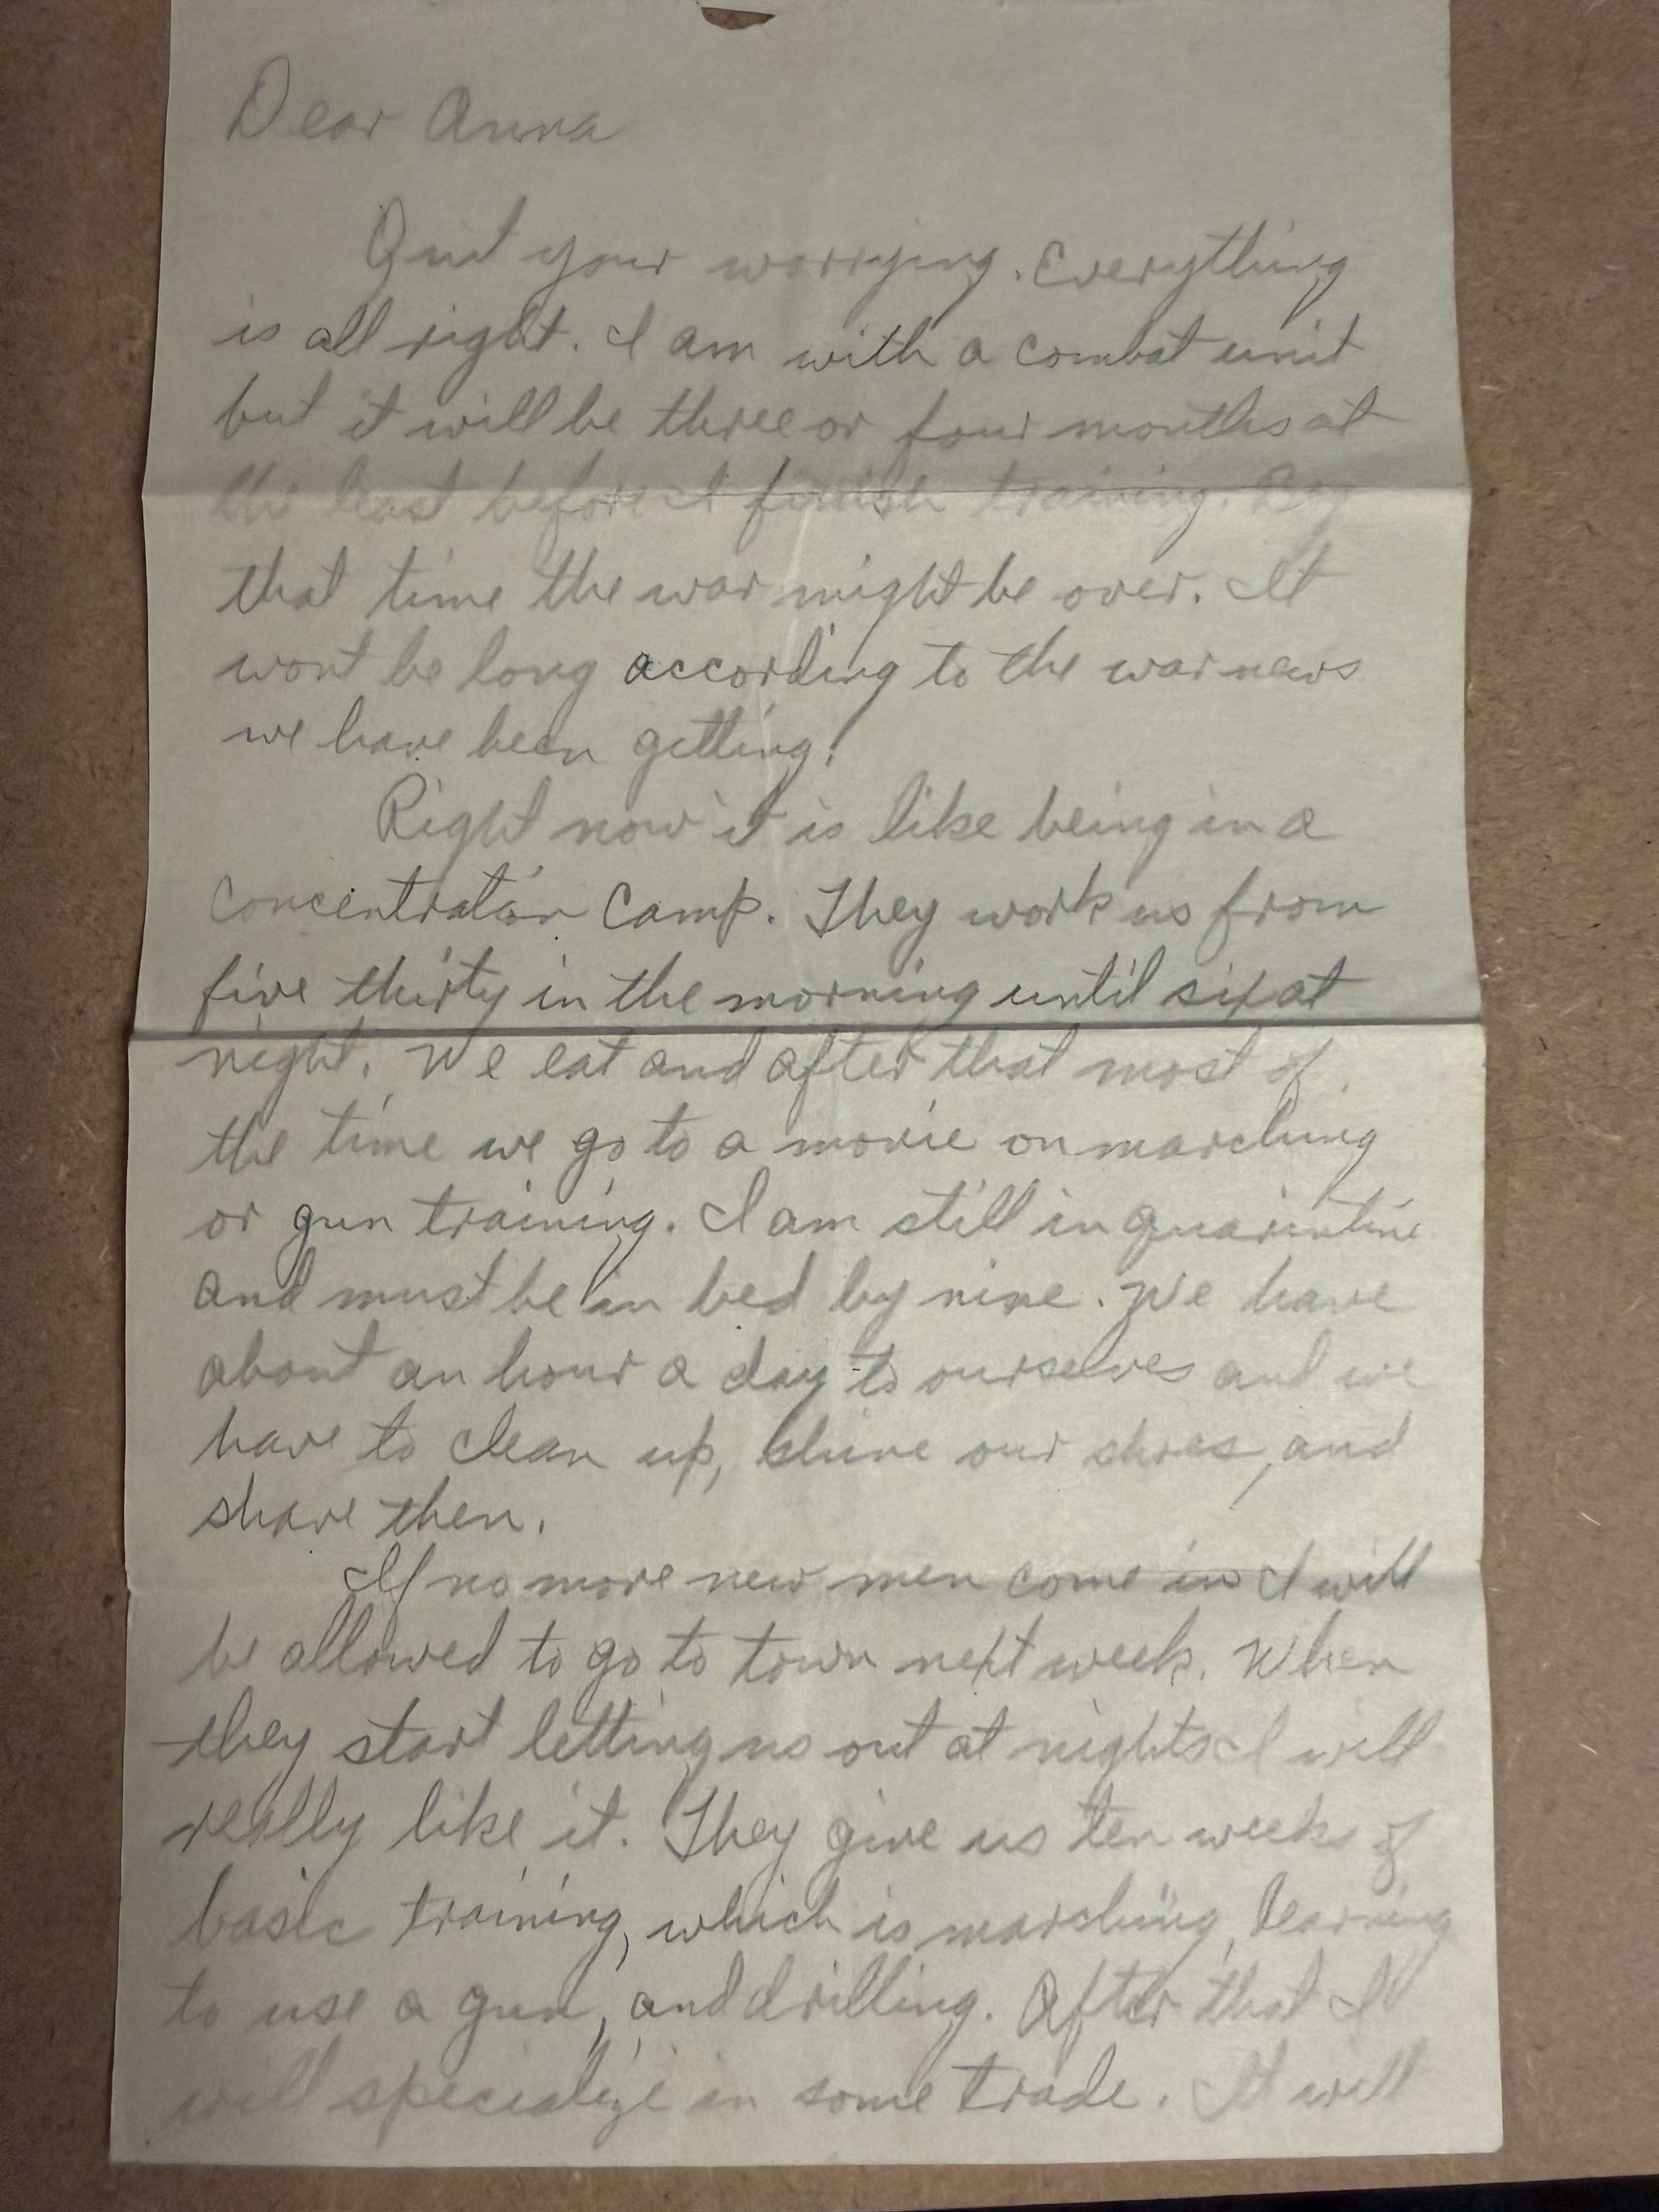 Dear Anna
Quit your worrying. Everything
is all right. I am with a combat unit
but it will be three or four months at
the least before I finish training. By
that time the war might be over. It
wont be long according to the war news
we have been getting.
Right now it is like being in a
concentration Camp. They work us from
five thirty in the morning until six at
night. We eat and after that most of
the time we go to a movie on marching
or gun training. I am still in quarintine
and must be in bed by nine. We have
about an hour a day to ourselves and we
have to clean up, shine our shoes, and
shave then.
If no more new men come in I will
be allowed to go to town next week. When
they start letting us out at nights I will
really like it. They give us ten weeks of
basic training, which is marching, learning
to use a gun, and drilling. After that I
will specialize in some trade. It will